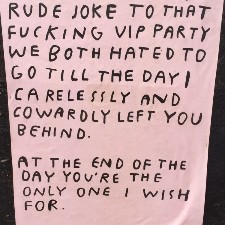 RUDE JOKE TO THAT
FUCKING VIP PARTY
WE BOTH HATED TO
GO TILL THE DAY I
CARELESSLY AND
COWARDLY LEFT YOU
BEHIND.
AT THE END OF THE
DAY YOU'RE THE
ONLY ONE I WISH
FOR.